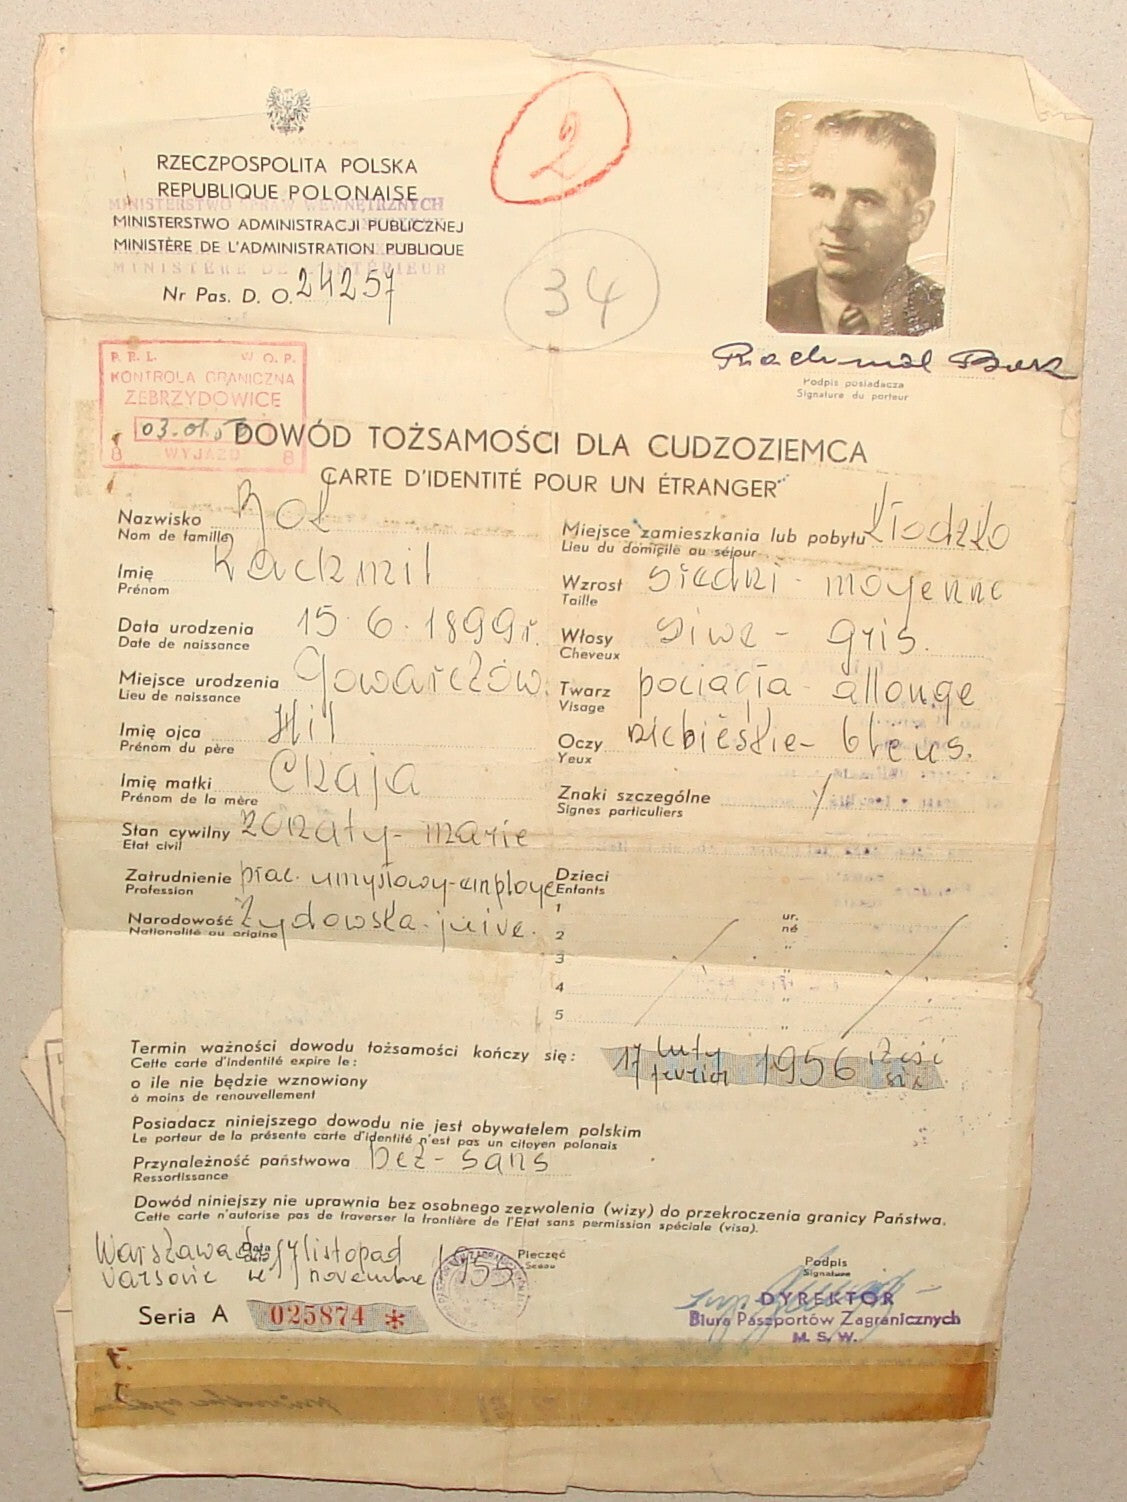 2
RZECZPOSPOLITA POLSKA
REPUBLIQUE POLONAISE
MINISTERSTWO SPRAW WEWNĘTRZNYCH
MINISTERSTWO ADMINISTRACJI PUBLICZNEJ
MINISTÈRE DE L'ADMINISTRATION PUBLIQUE
MINISTÈRE DE L'INTÉRIEUR
Nr Pas. D. O. 24257
34
Rachmil Bok
Podpis posiadacza
Signature du porteur
P. R. L. W. O. P.
KONTROLA GRANICZNA
ZEBRZYDOWICE
03.01.56
8 WYJAZD 8
DOWÓD TOŻSAMOŚCI DLA CUDZOZIEMCA
CARTE D'IDENTITÉ POUR UN ÉTRANGER
Nazwisko Bok
Nom de famille
Imię Rachmil
Prénom
Data urodzenia 15.6.1899r.
Date de naissance
Miejsce urodzenia Gowarczów.
Lieu de naissance
Imię ojca Hil
Prénom du père
Imię matki Chaja
Prénom de la mère
Stan cywilny żonaty - marie
Etat civil
Zatrudnienie prac. umysłowy - employe
Profession
Narodowość Żydowska - juive.
Nationalité ou origine
Miejsce zamieszkania lub pobytu Kłodzko
Lieu du domicile au séjour
Wzrost średni - moyenne
Taille
Włosy siwe - gris.
Cheveux
Twarz pociągła - allonge
Visage
Oczy niebieskie - bleus.
Yeux
Znaki szczególne /
Signes particuliers
Dzieci
Enfants
1 ur.
2 né
3 "
4 "
5 "
Termin ważności dowodu tożsamości kończy się: 17 luty 1956 sześć
Cette carte d'indentité expire le: février six
o ile nie będzie wznowiony
à moins de renouvellement
Posiadacz niniejszego dowodu nie jest obywatelem polskim
Le porteur de la présente carte d'identité n'est pas un citoyen polonais
Przynależność państwowa bez - sans
Ressortissance
Dowód niniejszy nie uprawnia bez osobnego zezwolenia (wizy) do przekroczenia granicy Państwa.
Cette carte n'autorise pas de traverser la frontière de l'Etat sans permission spéciale (visa).
Warszawa dnia 17 listopad 1955
Varsovie le novembre
Pieczęć
Sceau
Podpis
Signature
DYREKTOR
Biura Paszportów Zagranicznych
M. S. W.
Seria A 025874 *